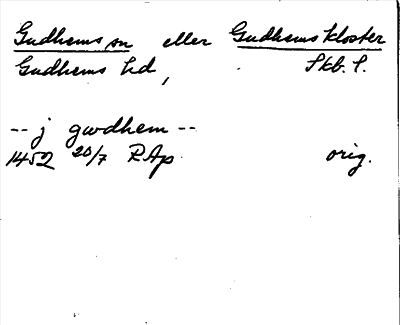 Gudhems sn eller Gudhems kloster
Gudhems hd, Skb. l.
-- j gwdhem --
1452 20/7 RAp. orig.